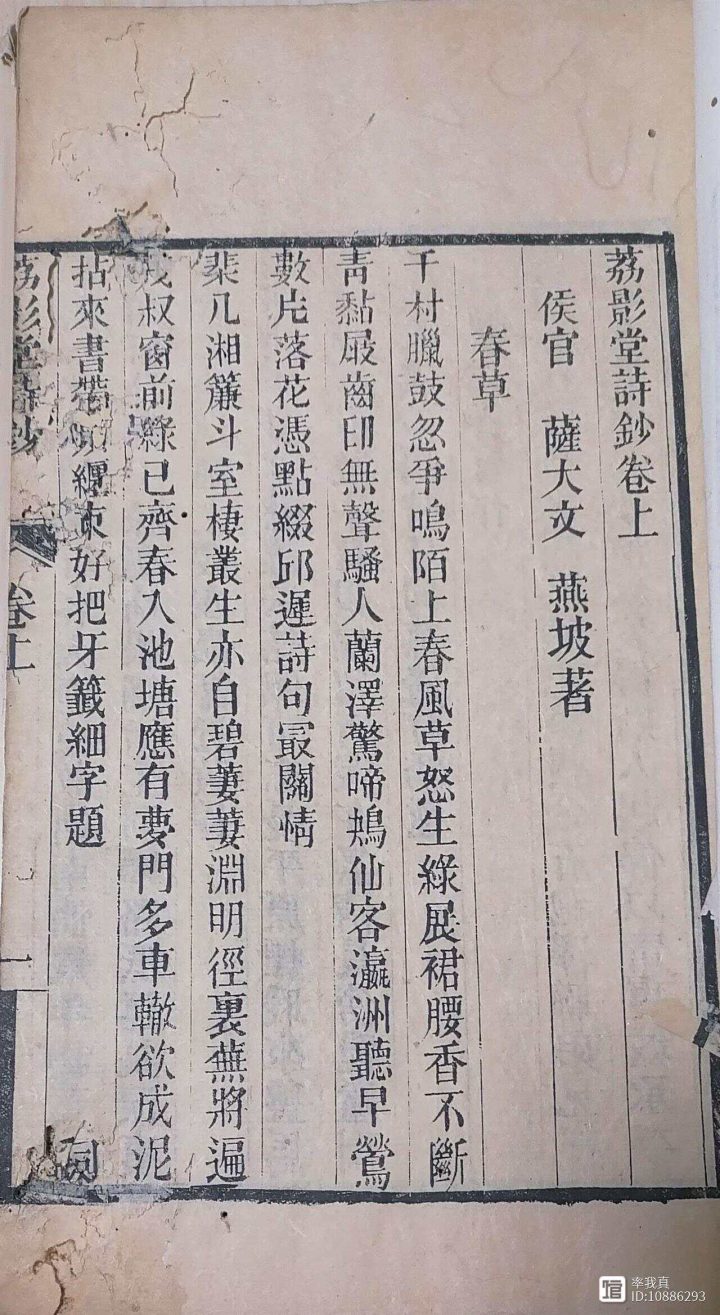 荔影堂詩鈔卷上
侯官　薩大文　燕坡著
春草
千村臘鼓忽爭鳴陌上春風草怒生綠展裙腰香不斷
青黏屐齒印無聲騷人蘭澤驚啼鴂仙客瀛洲聽早鶯
數片落花憑點綴邱遲詩句最關情
棐几湘簾斗室棲叢生亦自碧萋萋淵明徑裏蕪將遍
叔窗前綠已齊春入池塘應有夢門多車轍欲成泥
拈來書帶頻纏束好把牙籤細字題
荔影堂詩鈔
卷上
一
率我真
ID:10886293